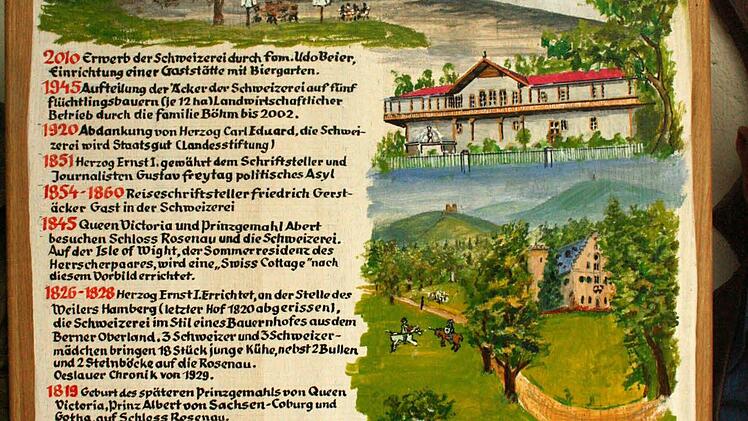 2010 Erwerb der Schweizerei durch fam. Udo Beier,
Einrichtung einer Gaststätte mit Biergarten.
1945 Aufteilung der Äcker der Schweizerei auf fünf
flüchtlingsbauern (je 12 ha) Landwirtschaftlicher
Betrieb durch die familie Böhm bis 2002.
1920 Abdankung von Herzog Carl Eduard, die Schwei-
zerei wird Staatsgut (Landesstiftung)
1851 Herzog Ernst I. gewährt dem Schriftsteller und
Journalisten Gustav freytag politisches Asyl
1854-1860 Reiseschriftsteller friedrich Gerst-
äcker Gast in der Schweizerei
1845 Queen Victoria und Prinzgemahl Abert
besuchen Schloss Rosenau und die Schweizerei.
Auf der Isle of Wight, der Sommerresidenz des
Herrscherpaares, wird eine „Swiss Cottage" nach
diesem Vorbild errichtet.
1826-1828 Herzog Ernst I. Errichtet, an der Stelle des
Weilers Hamberg (letzter Hof 1820 abgerissen),
die Schweizerei im Stil eines Bauernhofes aus dem
Berner Oberland. 3 Schweizer und 3 Schweizer-
mädchen bringen 18 Stück junge Kühe, nebst 2 Bullen
und 2 Steinböcke auf die Rosenau.
Oeslauer Chronik von 1929.
1819 Geburt des späteren Prinzgemahls von Queen
Victoria, Prinz Albert von Sachsen-Coburg und
Gotha, auf Schloss Rosenau.